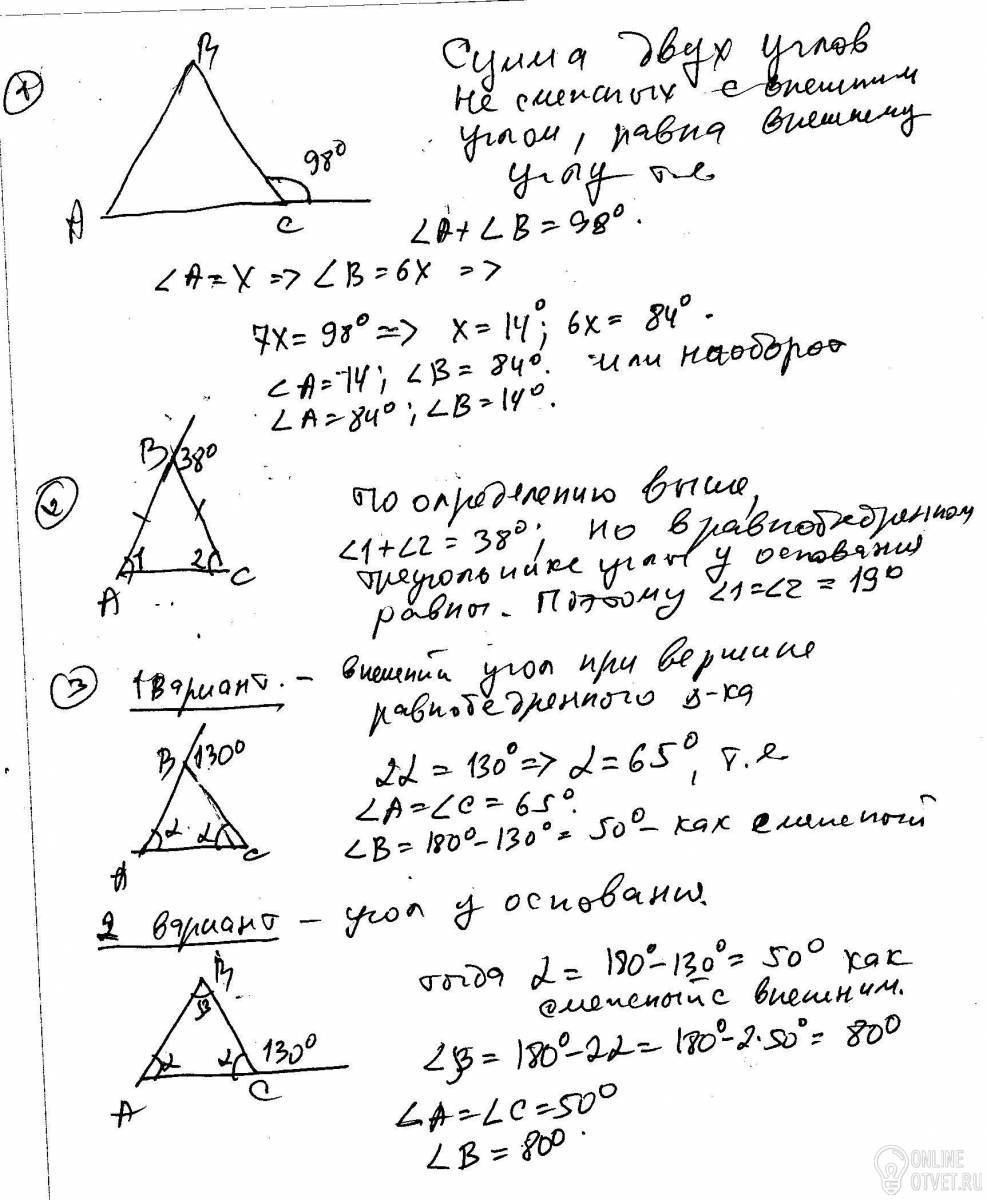 1
B
A
C
98°
Сумма двух углов
не смежных с внешним
углом, равна внешнему
углу т.е
∠A+∠B=98°.
∠A=x => ∠B=6x =>
7x=98° => x=14°; 6x=84°.
∠A=14; ∠B=84°. или наоборот
∠A=84°; ∠B=14°.
2
B 38°
1 2
A C
по определению выше,
∠1+∠2=38°; но в равнобедренном
треугольнике углы у основания
равны. Поэтому ∠1=∠2=19°
3
1 Вариант. – внешний угол при вершине
равнобедренного
B 130°
α α
A C
2α=130° => α=65°, т.е
∠A=∠C=65°.
∠B=180°-130°=50° – как смежный
2 вариант – угол у основания.
B
β
α α 130°
A C
тогда α=180°-130°=50° как
смежный с внешним.
∠B=180°-2α=180°-2·50°=80°
∠A=∠C=50°
∠B=80°.
ONLINE
OTVET.RU